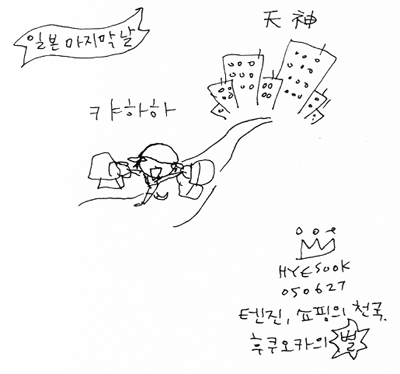 일본 마지막 날
天神
캬하하
HYESOOK
050627
텐진, 쇼핑의 천국.
후쿠오카의 별